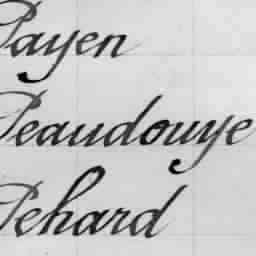 Payen
Peaudouye
Pehard